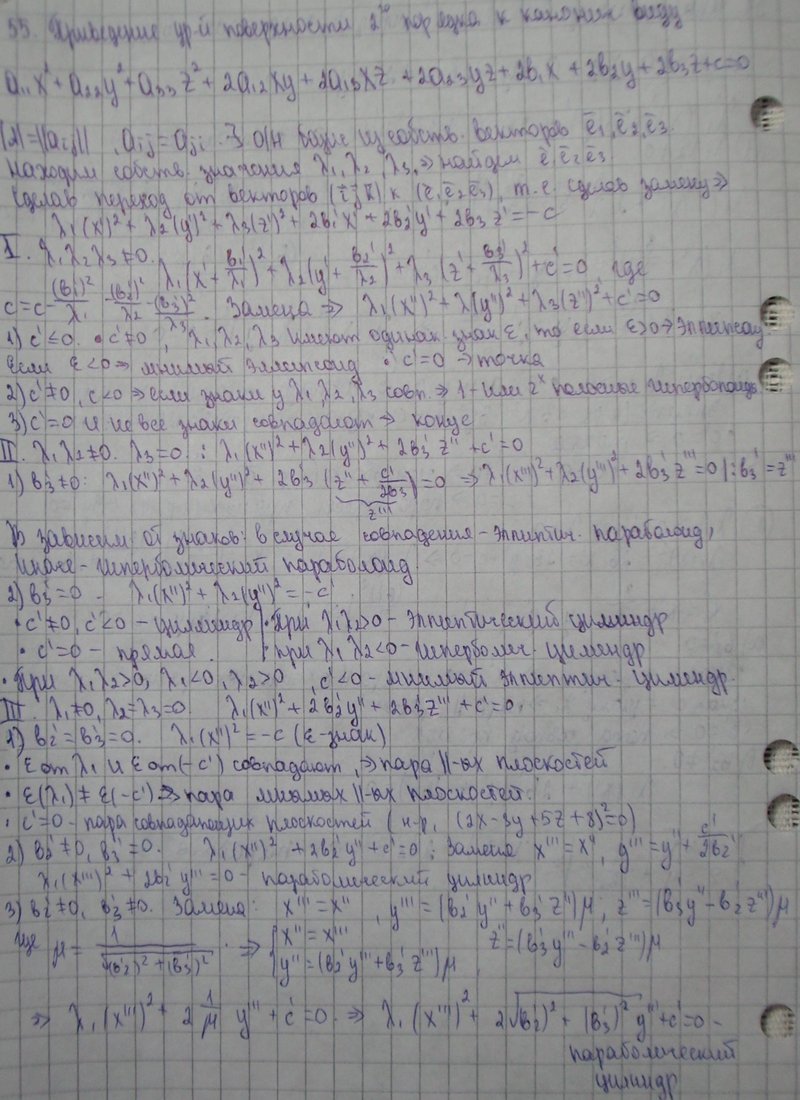 55. Приведение ур-й поверхности 2го порядка к канонич виду
a₁₁x²+a₂₂y²+a₃₃z²+2a₁₂xy+2a₁₃xz+2a₂₃yz+2b₁x+2b₂y+2b₃z+c=0
=||aij||, aij=aji. ∃ О/Н базис из собств. векторов e̅₁, e̅₂, e̅₃
Находим собств. значения λ₁, λ₂, λ₃ ⇒ найдем e̅₁ e̅₂ e̅₃
Сделав переход от векторов (i̅, j̅, k̅) к (e̅₁ e̅₂ e̅₃), т.е. сделав замену ⇒
λ₁(x')²+λ₂(y')²+λ₃(z')²+2b₁'x'+2b₂'y'+2b₃'z'=-c
I. λ₁λ₂λ₃≠0. λ₁(x'+b₁'/λ₁)²+λ₂(y'+b₂'/λ₂)²+λ₃(z'+b₃'/λ₃)²+c'=0, где
c=c-(b₁')²/λ₁-(b₂')²/λ₂-(b₃')²/λ₃. Замена ⇒ λ₁(x'')²+λ(y'')²+λ₃(z'')²+c'=0
1) c'≤0. • c'≠0, λ₁, λ₂, λ₃ имеют одинак. знак ε, то если ε>0→Эллипсоид
Если ε<0⇒ мнимый эллипсоид • c'=0 → точка
2) c'≠0, c'<0 ⇒ если знаки у λ₁ λ₂, λ₃ совп. ⇒ 1- или 2х полостные гиперболоиды
3) c'=0 и не все знаки совпадают → конус
II. λ₁λ₂≠0. λ₃=0. : λ₁(x'')²+λ₂(y'')²+2b₃'z''+c'=0
1) b₃'≠0: λ₁(x'')²+λ₂(y'')²+2b₃'(z''+c'/2b₃')=0 ⇒ λ₁(x''')²+λ₂(y''')²+2b₃'z'''=0 |:b₃'=z'''
z'''
В зависим от знаков: в случае совпадения - эллиптич. параболоид,
Иначе - гиперболический параболоид.
2) b₃'=0 - λ₁(x'')²+λ₂(y'')²=-c'
• c'≠0, c'<0 - цилиндр | • При λ₁λ₂>0 - эллиптический цилиндр
• c'=0 - прямая. | • при λ₁λ₂<0 - гиперболич. цилиндр
• При λ₁λ₂>0, λ₁<0, λ₂>0, c'<0 - мнимый эллиптич. цилиндр.
III. λ₁≠0, λ₂=λ₃=0. λ₁(x'')²+2b₂'y''+2b₃'z''+c'=0,
1) b₂'=b₃'=0. λ₁(x'')²=-c (ε-знак)
• ε от λ₁ и ε от (-c') совпадают, ⇒ пара ||-ых плоскостей
• ε(λ₁)≠ε(-c') ⇒ пара мнимых ||-ых плоскостей.
• c'=0 - пара совпадающих плоскостей (н-р, (2x-3y+5z+8)²=0)
2) b₂'≠0, b₃'=0. λ₁(x'')²+2b₂'y''+c'=0; Замена x'''=x'', y'''=y''+c'/2b₂'
λ₁(x''')²+2b₂'y'''=0 - параболический цилиндр
3) b₂'≠0, b₃'≠0. Замена: x'''=x'', y'''=(b₂'y''+b₃'z'')μ; z'''=(b₃'y''-b₂'z'')μ
где μ=1/√((b₂')²+(b₃')²) ⇒ {x''=x''' y''=(b₂'y'''+b₃'z''')μ, z''=(b₃'y'''-b₂'z''')μ
⇒ λ₁(x''')²+2 1/μ y'''+c'=0 ⇒ λ₁(x''')²+2√((b₂')²+(b₃')²) y'''+c'=0 -
параболический
цилиндр